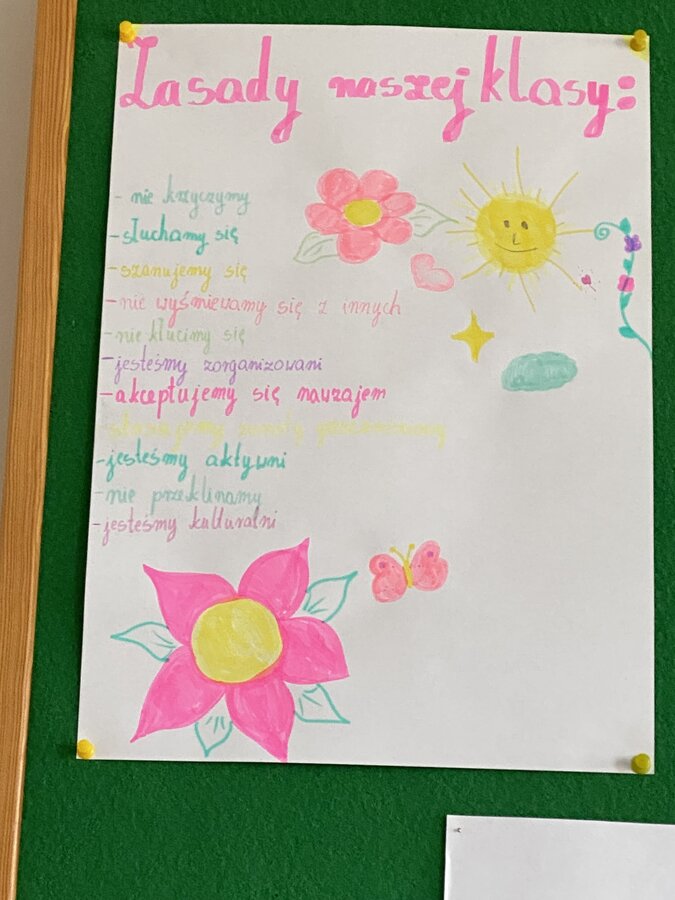 Zasady naszej klasy:
- nie krzyczymy
- słuchamy się
- szanujemy się
- nie wyśmiewamy się z innych
- nie kłucimy się
- jesteśmy zorganizowani
- akceptujemy się nawzajem
- jesteśmy aktywni
- nie przeklinamy
- jesteśmy kulturalni